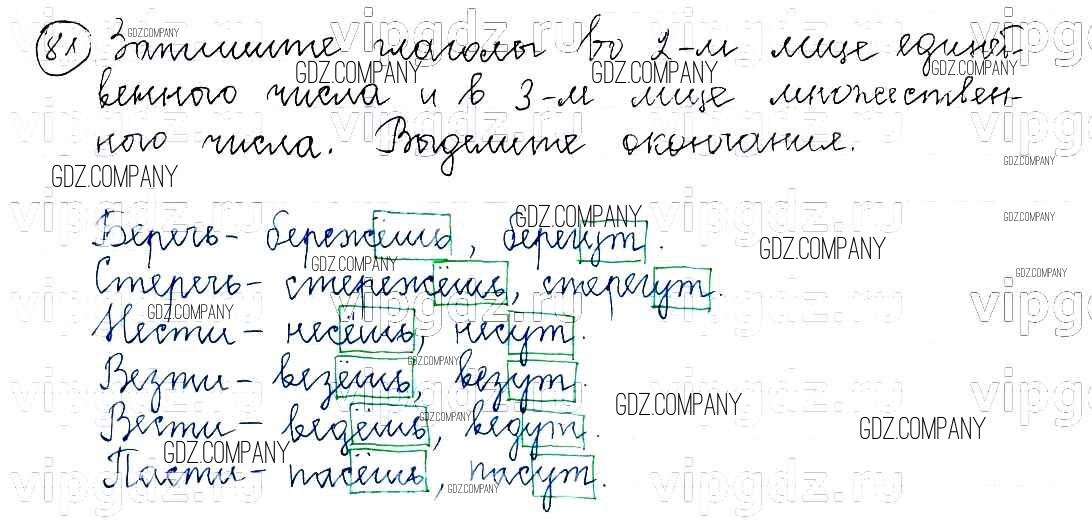 81 Запишите глаголы во 2-м лице единст-
венного числа и в 3-м лице множествен-
ного числа. Выделите окончания.
Беречь - бережёшь, берегут.
Стеречь - стережёшь, стерегут.
Нести - несёшь, несут.
Везти - везёшь, везут.
Вести - ведёшь, ведут.
Пасти - пасёшь, пасут.
GDZ.COMPANY
vipgdz.ru